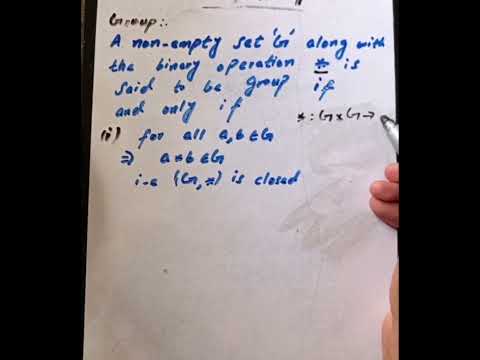 Group:-
A non-empty set 'G' along with
the binary operation * is
said to be group if
and only if
* : G x G →
(i) for all a, b ∈ G
⇒ a * b ∈ G
i-e (G, *) is closed